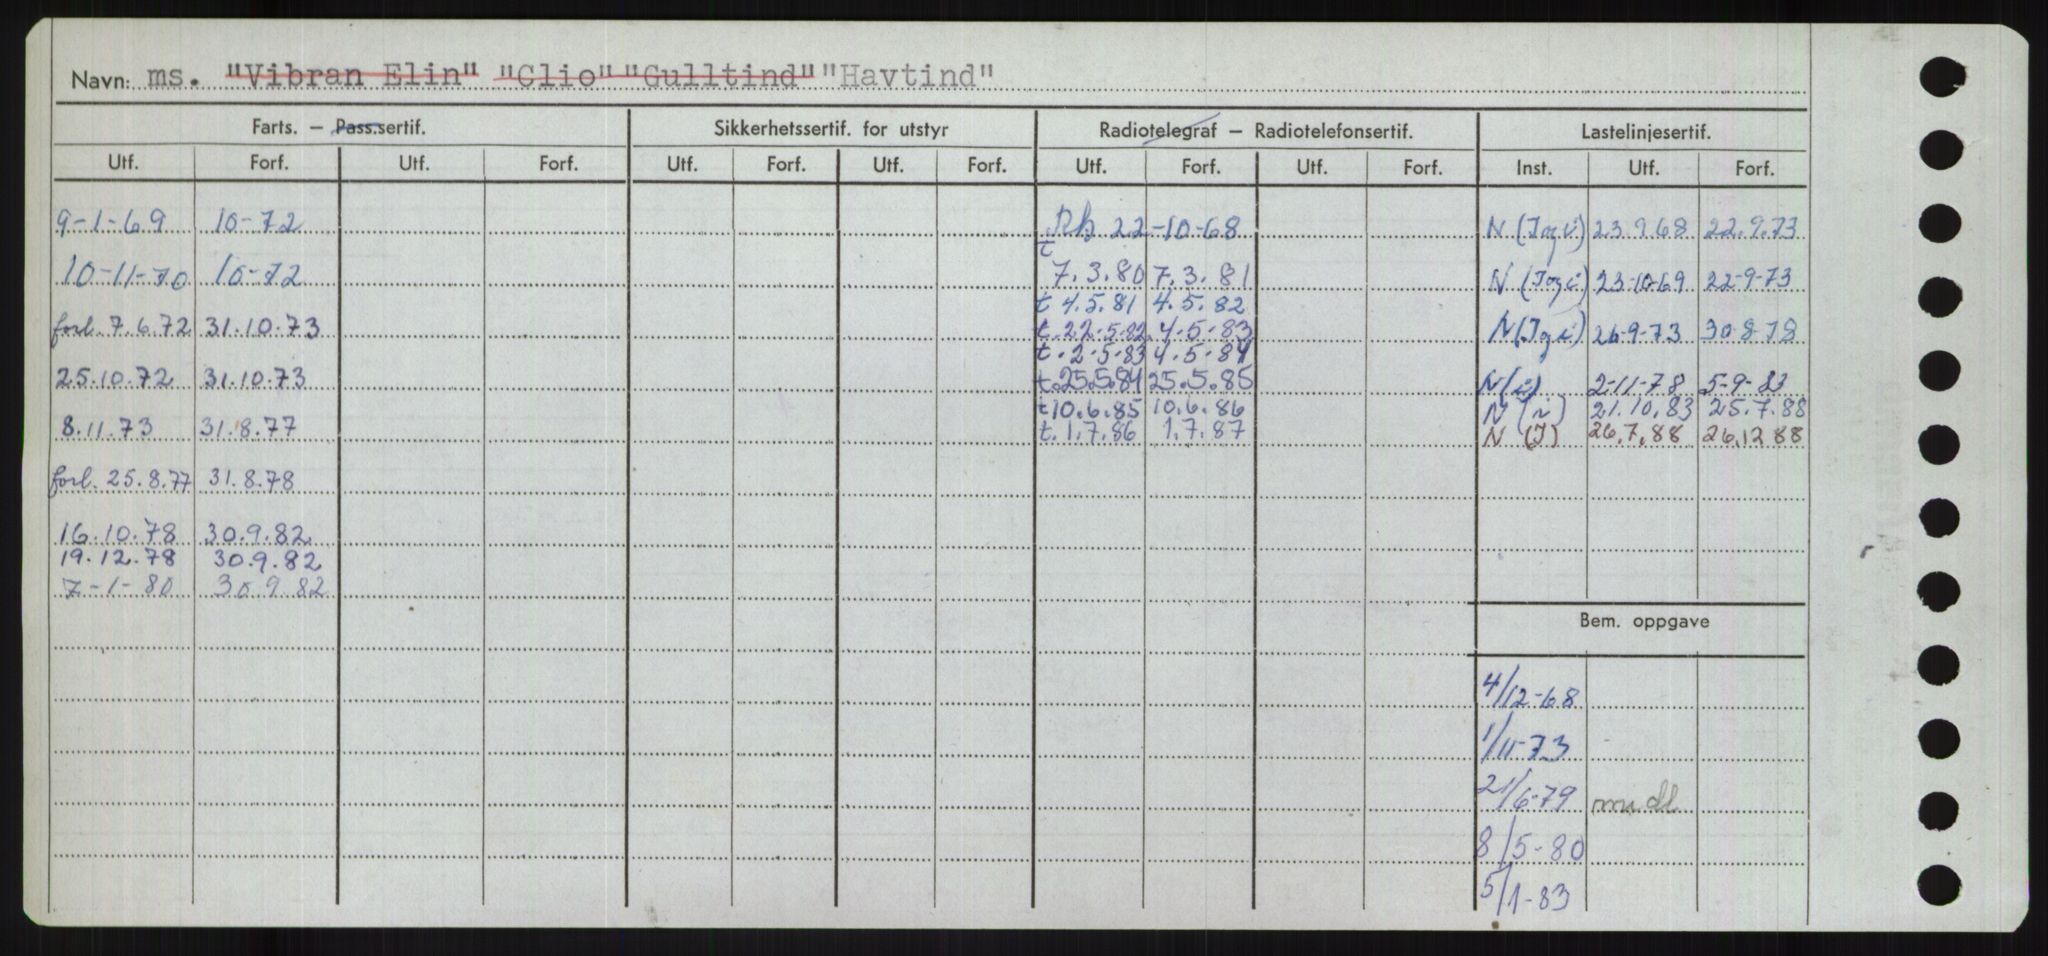 Navn: ms. "Vibran Elin" "Clio" "Gulltind" "Havtind"
Farts. – Pass.sertif. Sikkerhetssertif. for utstyr Radiotelegraf – Radiotelefonsertif. Lastelinjesertif.
Utf. Forf. Utf. Forf. Utf. Forf. Utf. Forf. Utf. Forf. Utf. Forf. Inst. Utf. Forf.
9-1-69 10-72 22-10-68 N 23.9.68 22.9.73
10-11-70 10-72 t 7.3.80 7.3.81 N 23-10-69 22-9-73
t 4.5.81 4.5.82
forl. 7.6.72 31.10.73 t. 22-5-82 4-5-83 N 26-9-73 30-8-78
t. 2-5-83 4-5-84
25.10.72 31.10.73 t. 25.5.84 25.5.85 N 2-11-78 5-9-83
t 10.6.85 10.6.86 N 21.10.83 25.7.88
8.11.73 31.8.77 t. 1.7.86 1.7.87 N (I) 26.7.88 26.12 88
forl. 25.8.77 31.8.78
16.10.78 30.9.82
19.12.78 30.9.82
7-1-80 30.9.82
Bem. oppgave
4/12-68
1/11-73
21/6-79
8/5-80
5/1-83